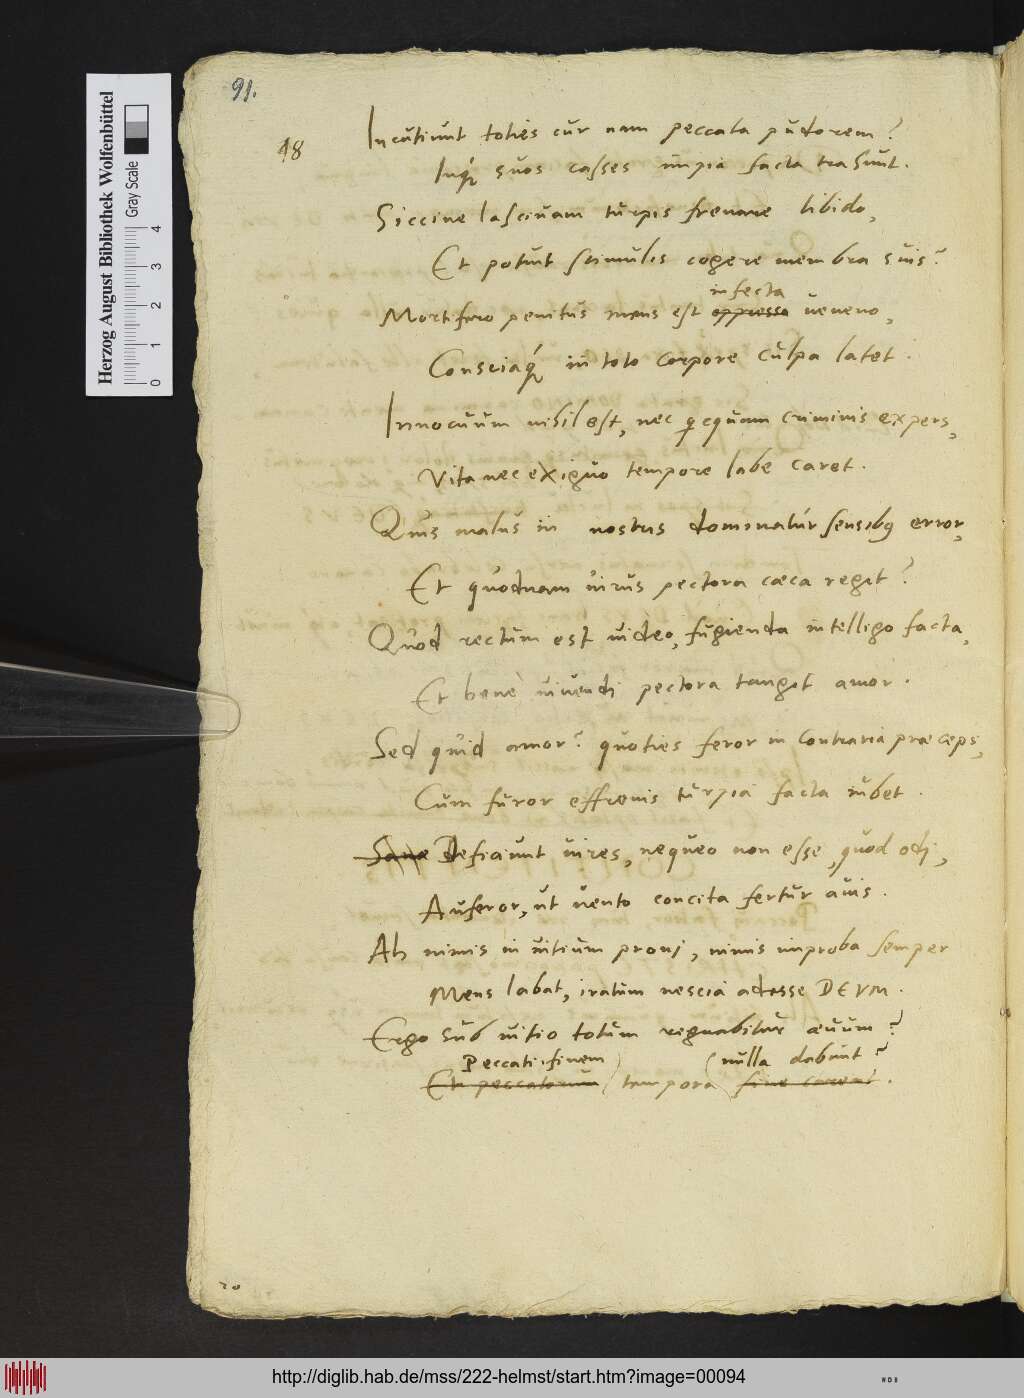 91.
18
Incutiunt toties cur nam peccata pudorem?
Inq́; suos casses impia facta trahunt.
Siccine lascivam turpis frenare libido,
Et potuit stimulis cogere membra suis?
infecta
Mortifero penitus mens est oppressa veneno,
Consciaq́; in toto corpore culpa latet.
Innocuum nihil est, nec qcquam criminis expers,
Vita nec exiguo tempore labe caret.
Quis malus in nostris dominatur sensibq; error,
Et quodnam virus pectora cæca regit?
Quod rectum est video, fugienda intelligo facta,
Et bene vivendi pectora tangit amor.
Sed quid amor? quoties feror in contraria præceps,
Cum furor effrenis turpia facta iubet.
Sane Deficiunt vires, nequeo non esse, quod odj,
Auferor, ut vento concita fertur avis.
Ah nimis in vitium pronj, nimis improba semper
Mens labat, iratum nescia adesse DEVM.
Ergo sub vitio totum regnabitur ævum?
Peccati finem nulla dabunt?
Et peccatorum tempora fine carent.
20
Herzog August Bibliothek Wolfenbüttel
Gray Scale
0 1 2 3 4
http://diglib.hab.de/mss/222-helmst/start.htm?image=00094